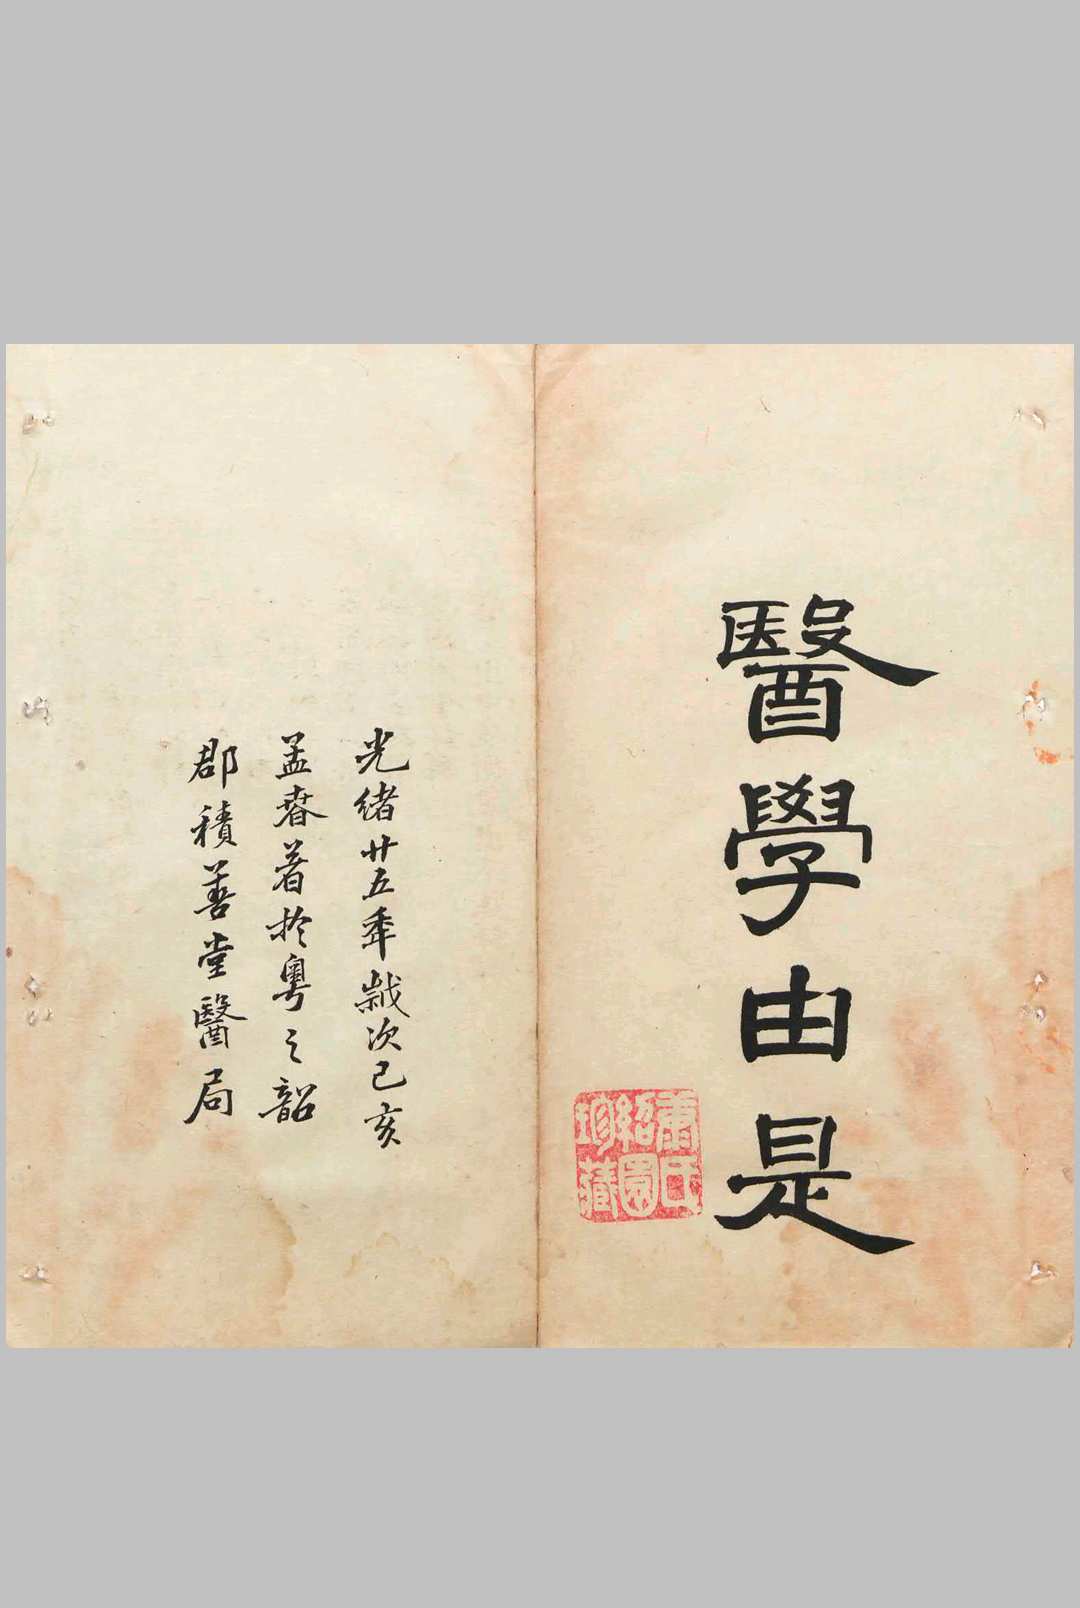 醫學由是
蕭氏
紹園
珍藏
光緒廿五秊歲次己亥
孟春著於粵之韶
郡積善堂醫局